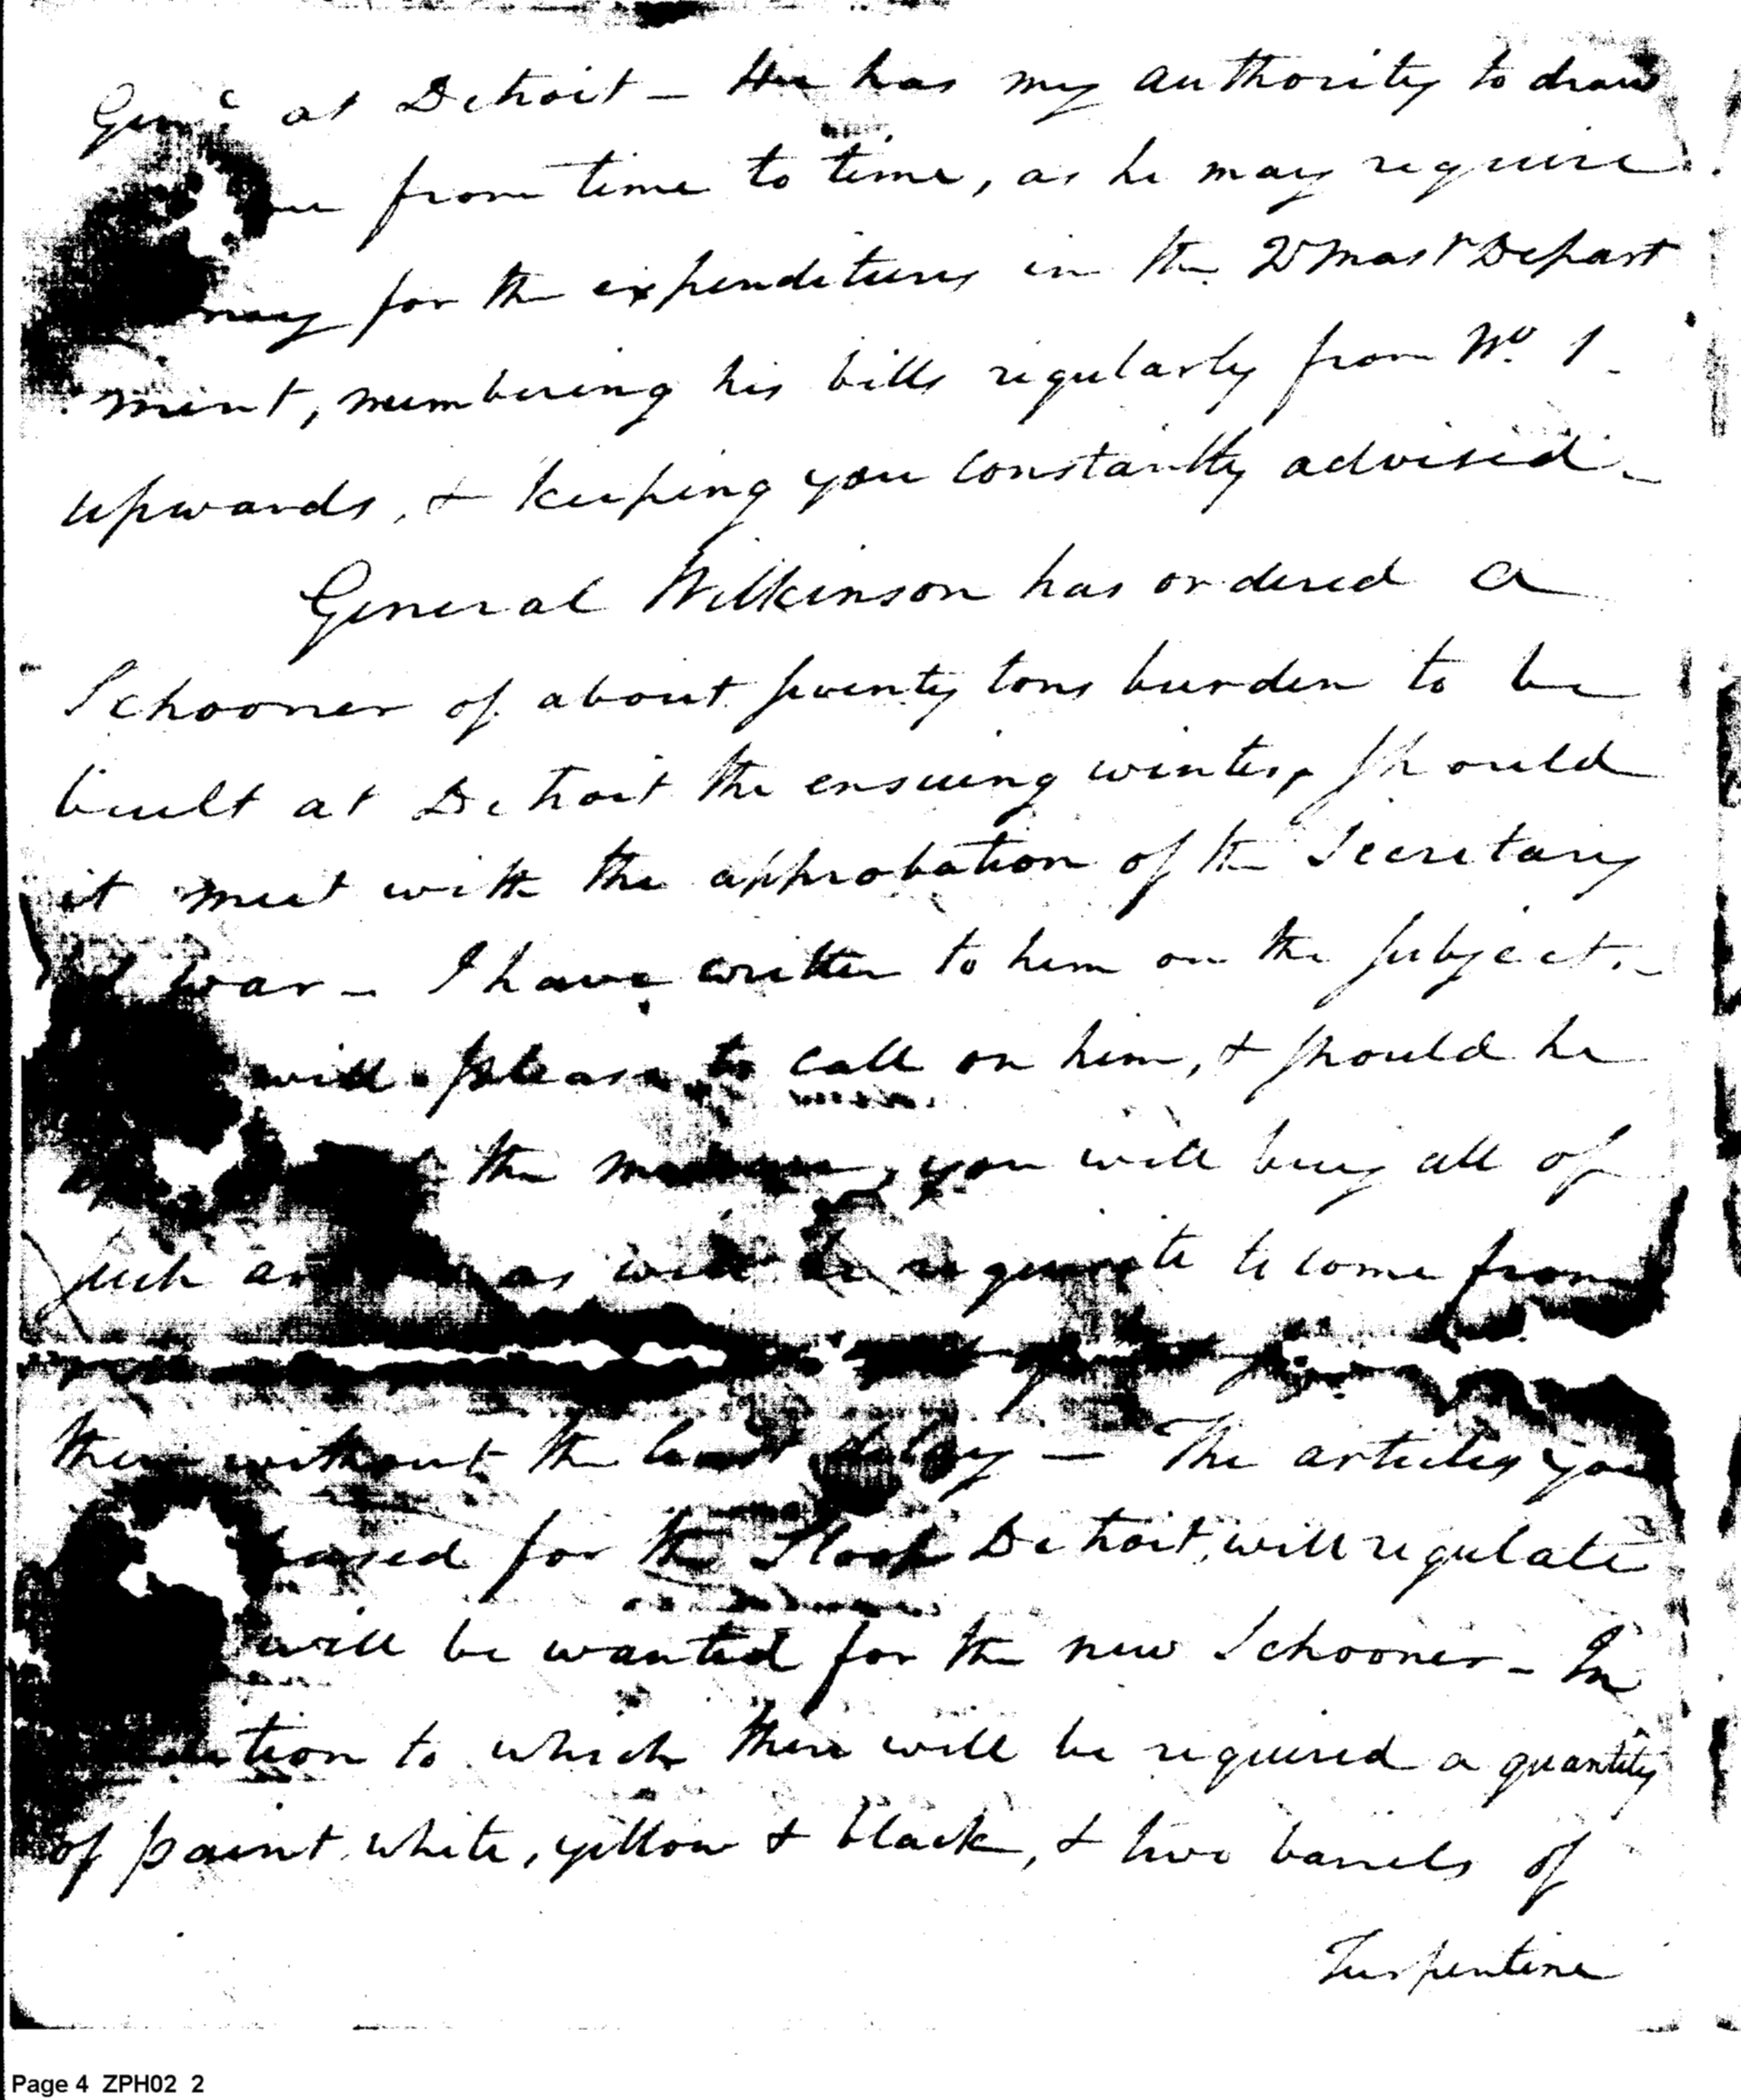 Genl. at Detroit – He has my authority to draw
from time to time, as he may require
for the expenditures in the Qr Mastr Depart
ment, numbering his bills regularly from No. 1
upwards, & keeping you constantly advised –
General Wilkinson has ordered a
Schooner of about seventy tons burden to be
built at Detroit the ensuing winter, should
it meet with the approbation of the Secretary
of War – I have written to him on the subject. –
will please to call on him, & should he
the you will buy all of
such as will be requisite to come from
without the least delay – The articles you
for the Sloop Detroit, will regulate
will be wanted for the new Schooner – In
to which there will be required a quantity
of paint, white, yellow & black, & two barrels of
Turpentine
Page 4 ZPH02 2